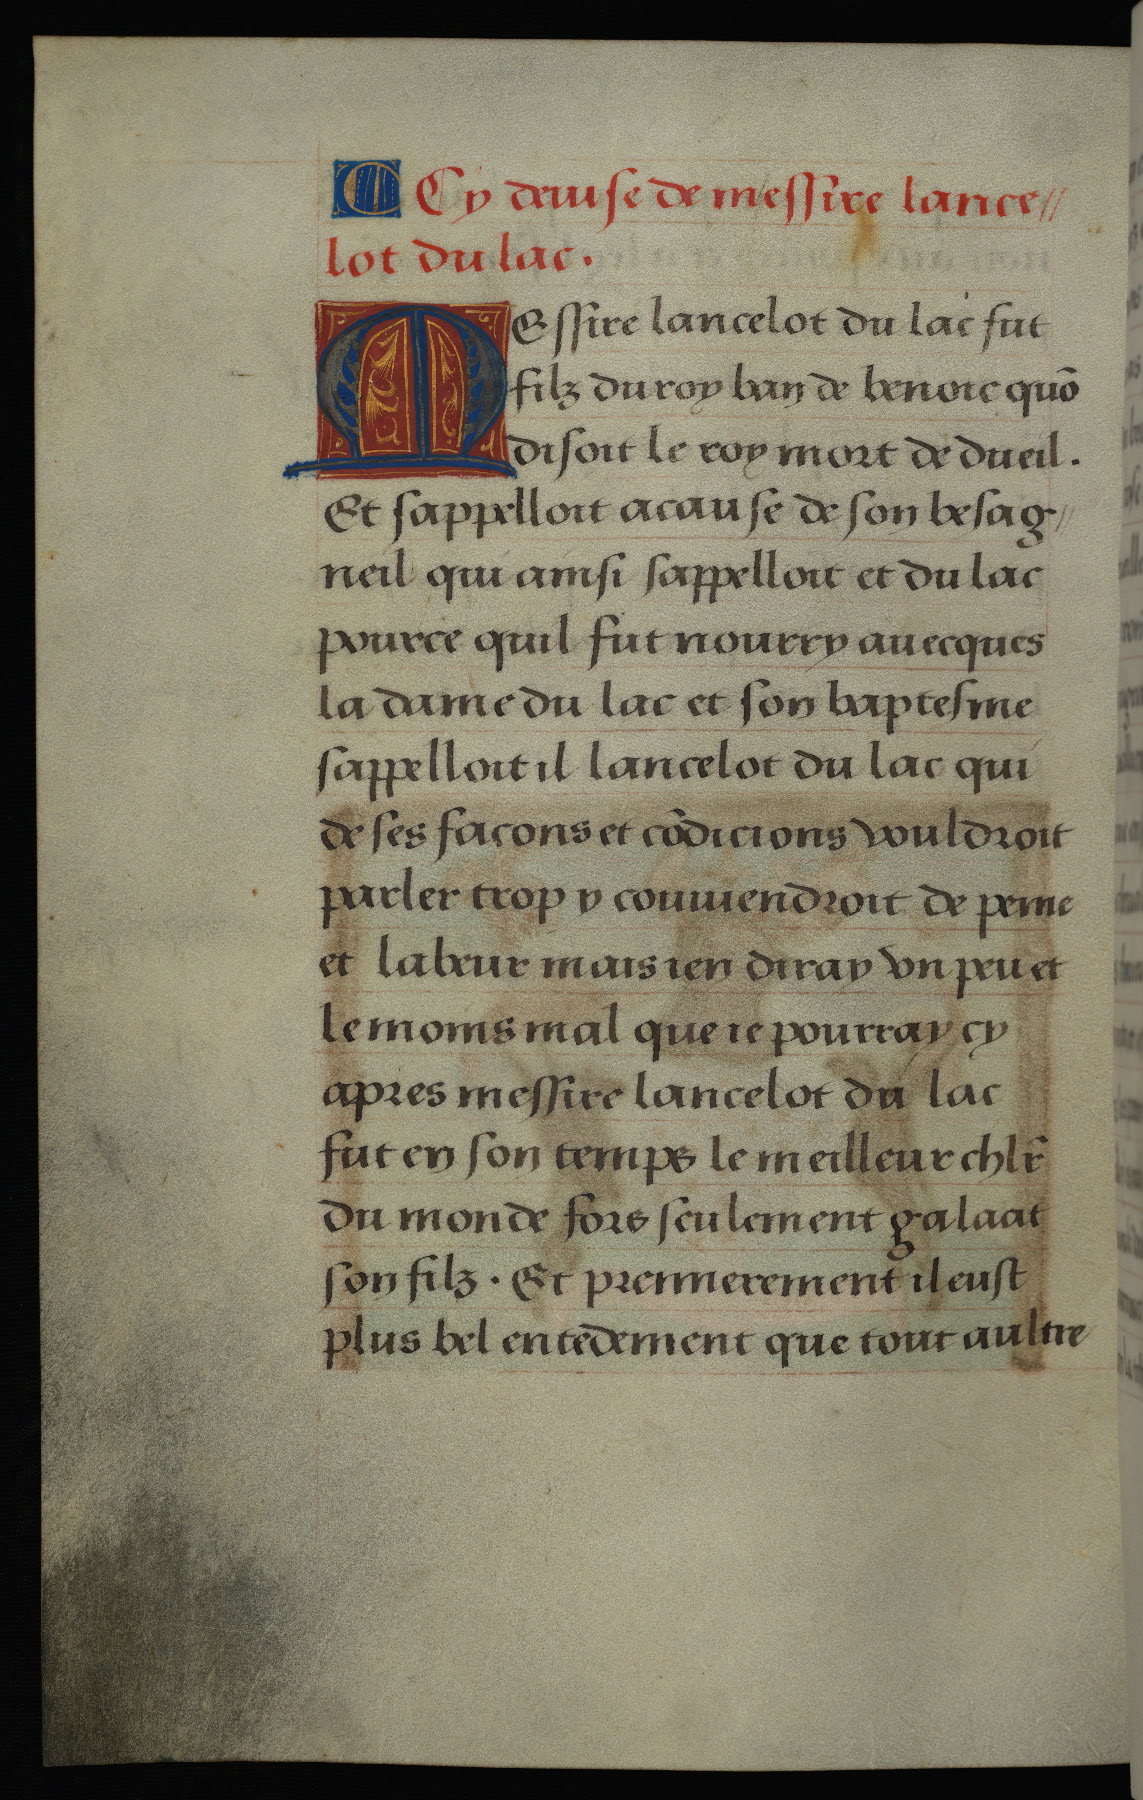 Cy deuise de messire lance//
lot du lac.
MEssire lancelot du lac fut
filz du roy ban de benoic quõ
disoit le roy mort de dueil.
Et sappelloit acause de son besag//
neil qui ainsi sappelloit et du lac
pource quil fut nourry auecques
la dame du lac et son baptesme
sappelloit il lancelot du lac qui
de ses facons et cõdicions vouldroit
parler trop y conuiendroit de peine
et labeur mais ien diray vn peu et
le moins mal que ie pourray cy
apres messire lancelot du lac
fut en son temps le meilleur chlr̃
du monde fors seulement galaat
son filz. Et premierement il eust
plus bel entẽdement que tout aultre